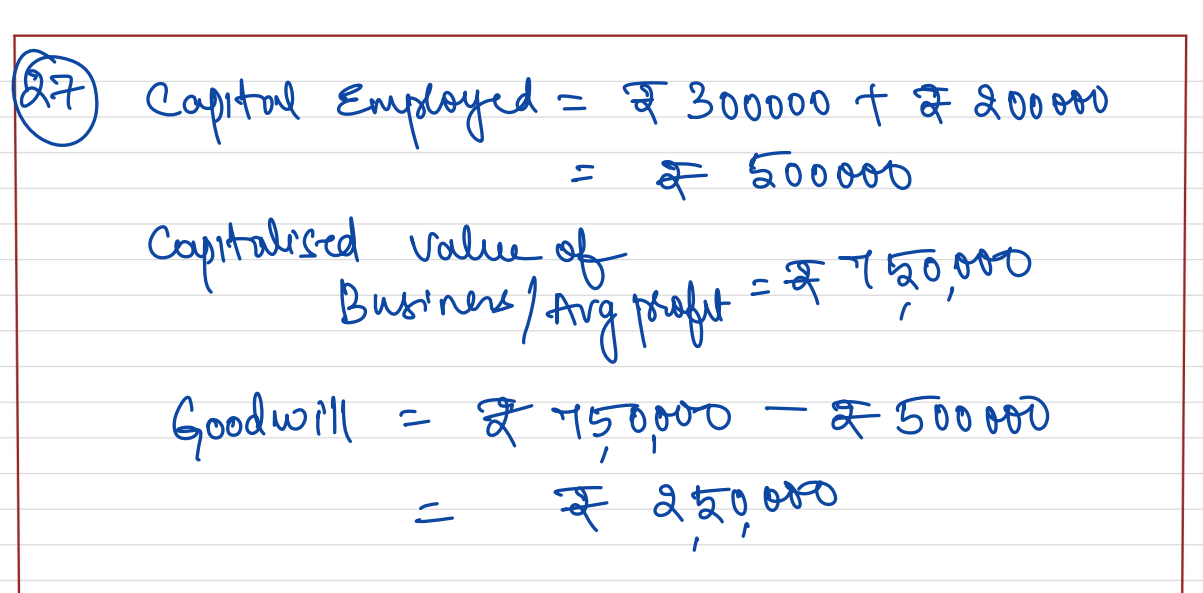 27 Capital Employed = ₹ 300000 + ₹ 200000
= ₹ 500000
Capitalised value of
Business/Avg profit = ₹ 7,50,000
Goodwill = ₹ 7,50,000 - ₹ 500000
= ₹ 2,50,000